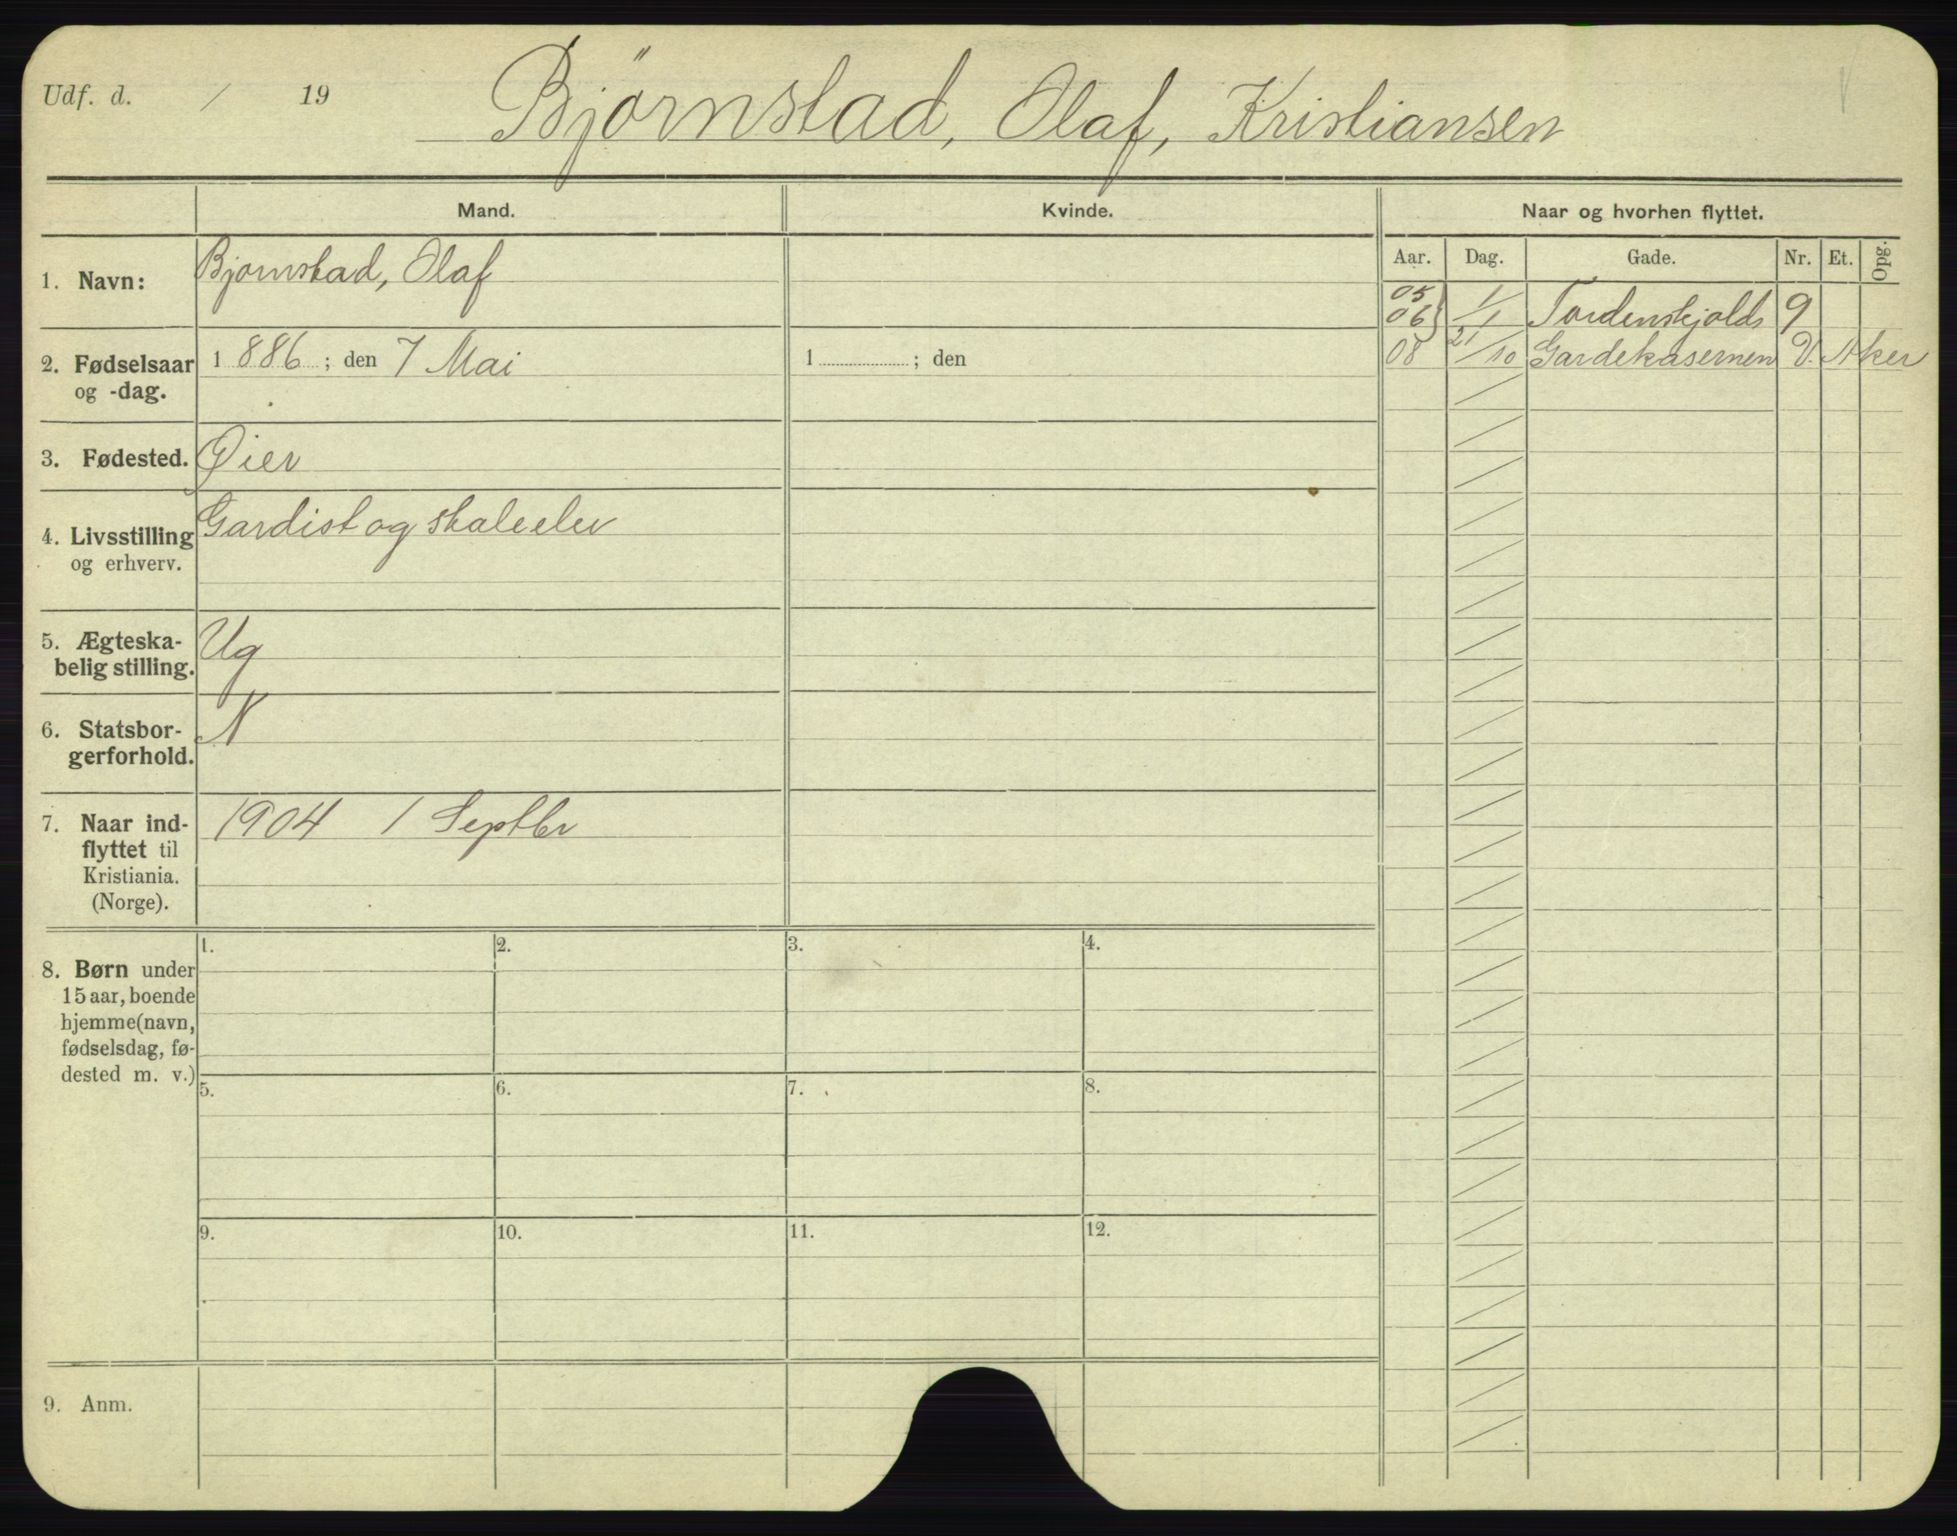 Udf. d. / 19
Bjørnstad, Olaf, Kristiansen
Mand.
Kvinde.
Naar og hvorhen flyttet.
Aar. Dag. Gade. Nr. Et. Opg.
1. Navn:
Bjørnstad, Olaf
05
06 } 1/1 Tordenskjolds 9
08 21/10 Gardekasernen V. Aker
2. Fødselsaar
og -dag.
1886; den 7 Mai
1 ; den
3. Fødested.
Øier
4. Livsstilling
og erhverv.
Gardist og skoleelev
5. Ægteska-
belig stilling.
Ug
6. Statsbor-
gerforhold.
N
7. Naar ind-
flyttet til
Kristiania.
(Norge).
1904 1 Septbr
8. Børn under
15 aar, boende
hjemme (navn,
fødselsdag, fø-
dested m. v.)
1. 2. 3. 4.
5. 6. 7. 8.
9. 10. 11. 12.
9. Anm.